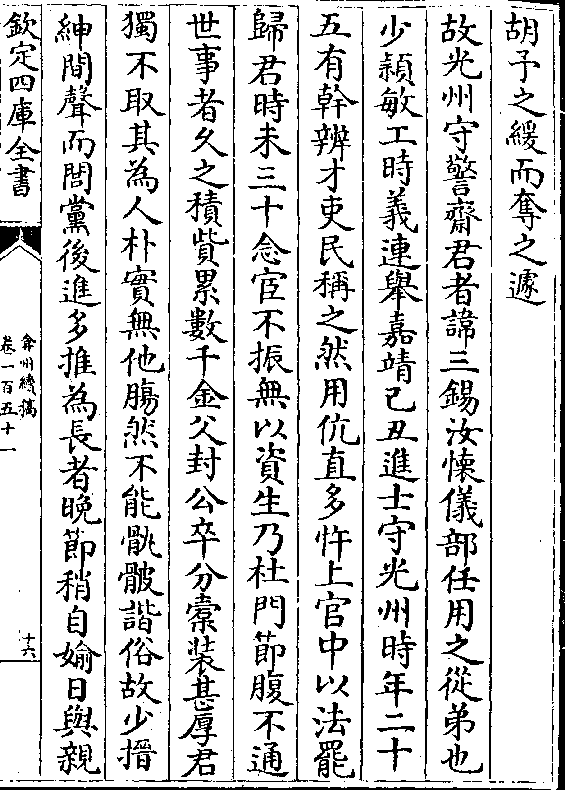 胡予之緩而奪之遽
故光州守警齋君者諱三錫汝懷儀部任用之從弟也
少穎敏工時義連舉嘉靖己丑進士守光州時年二十
五有幹辨才吏民稱之然用伉直多忤上官中以法罷
歸君時未三十念宦不振無以資生乃杜門節腹不通
世事者久之積貲累數千金父封公卒分橐裝甚厚君
獨不取其為人朴實無他腸然不能骫骳諧俗故少搢
紳間聲而閭黨後進多推為長者晚節稍自媮日與親
欽定四庫全書
弇州續稿
卷一百五十一
十六